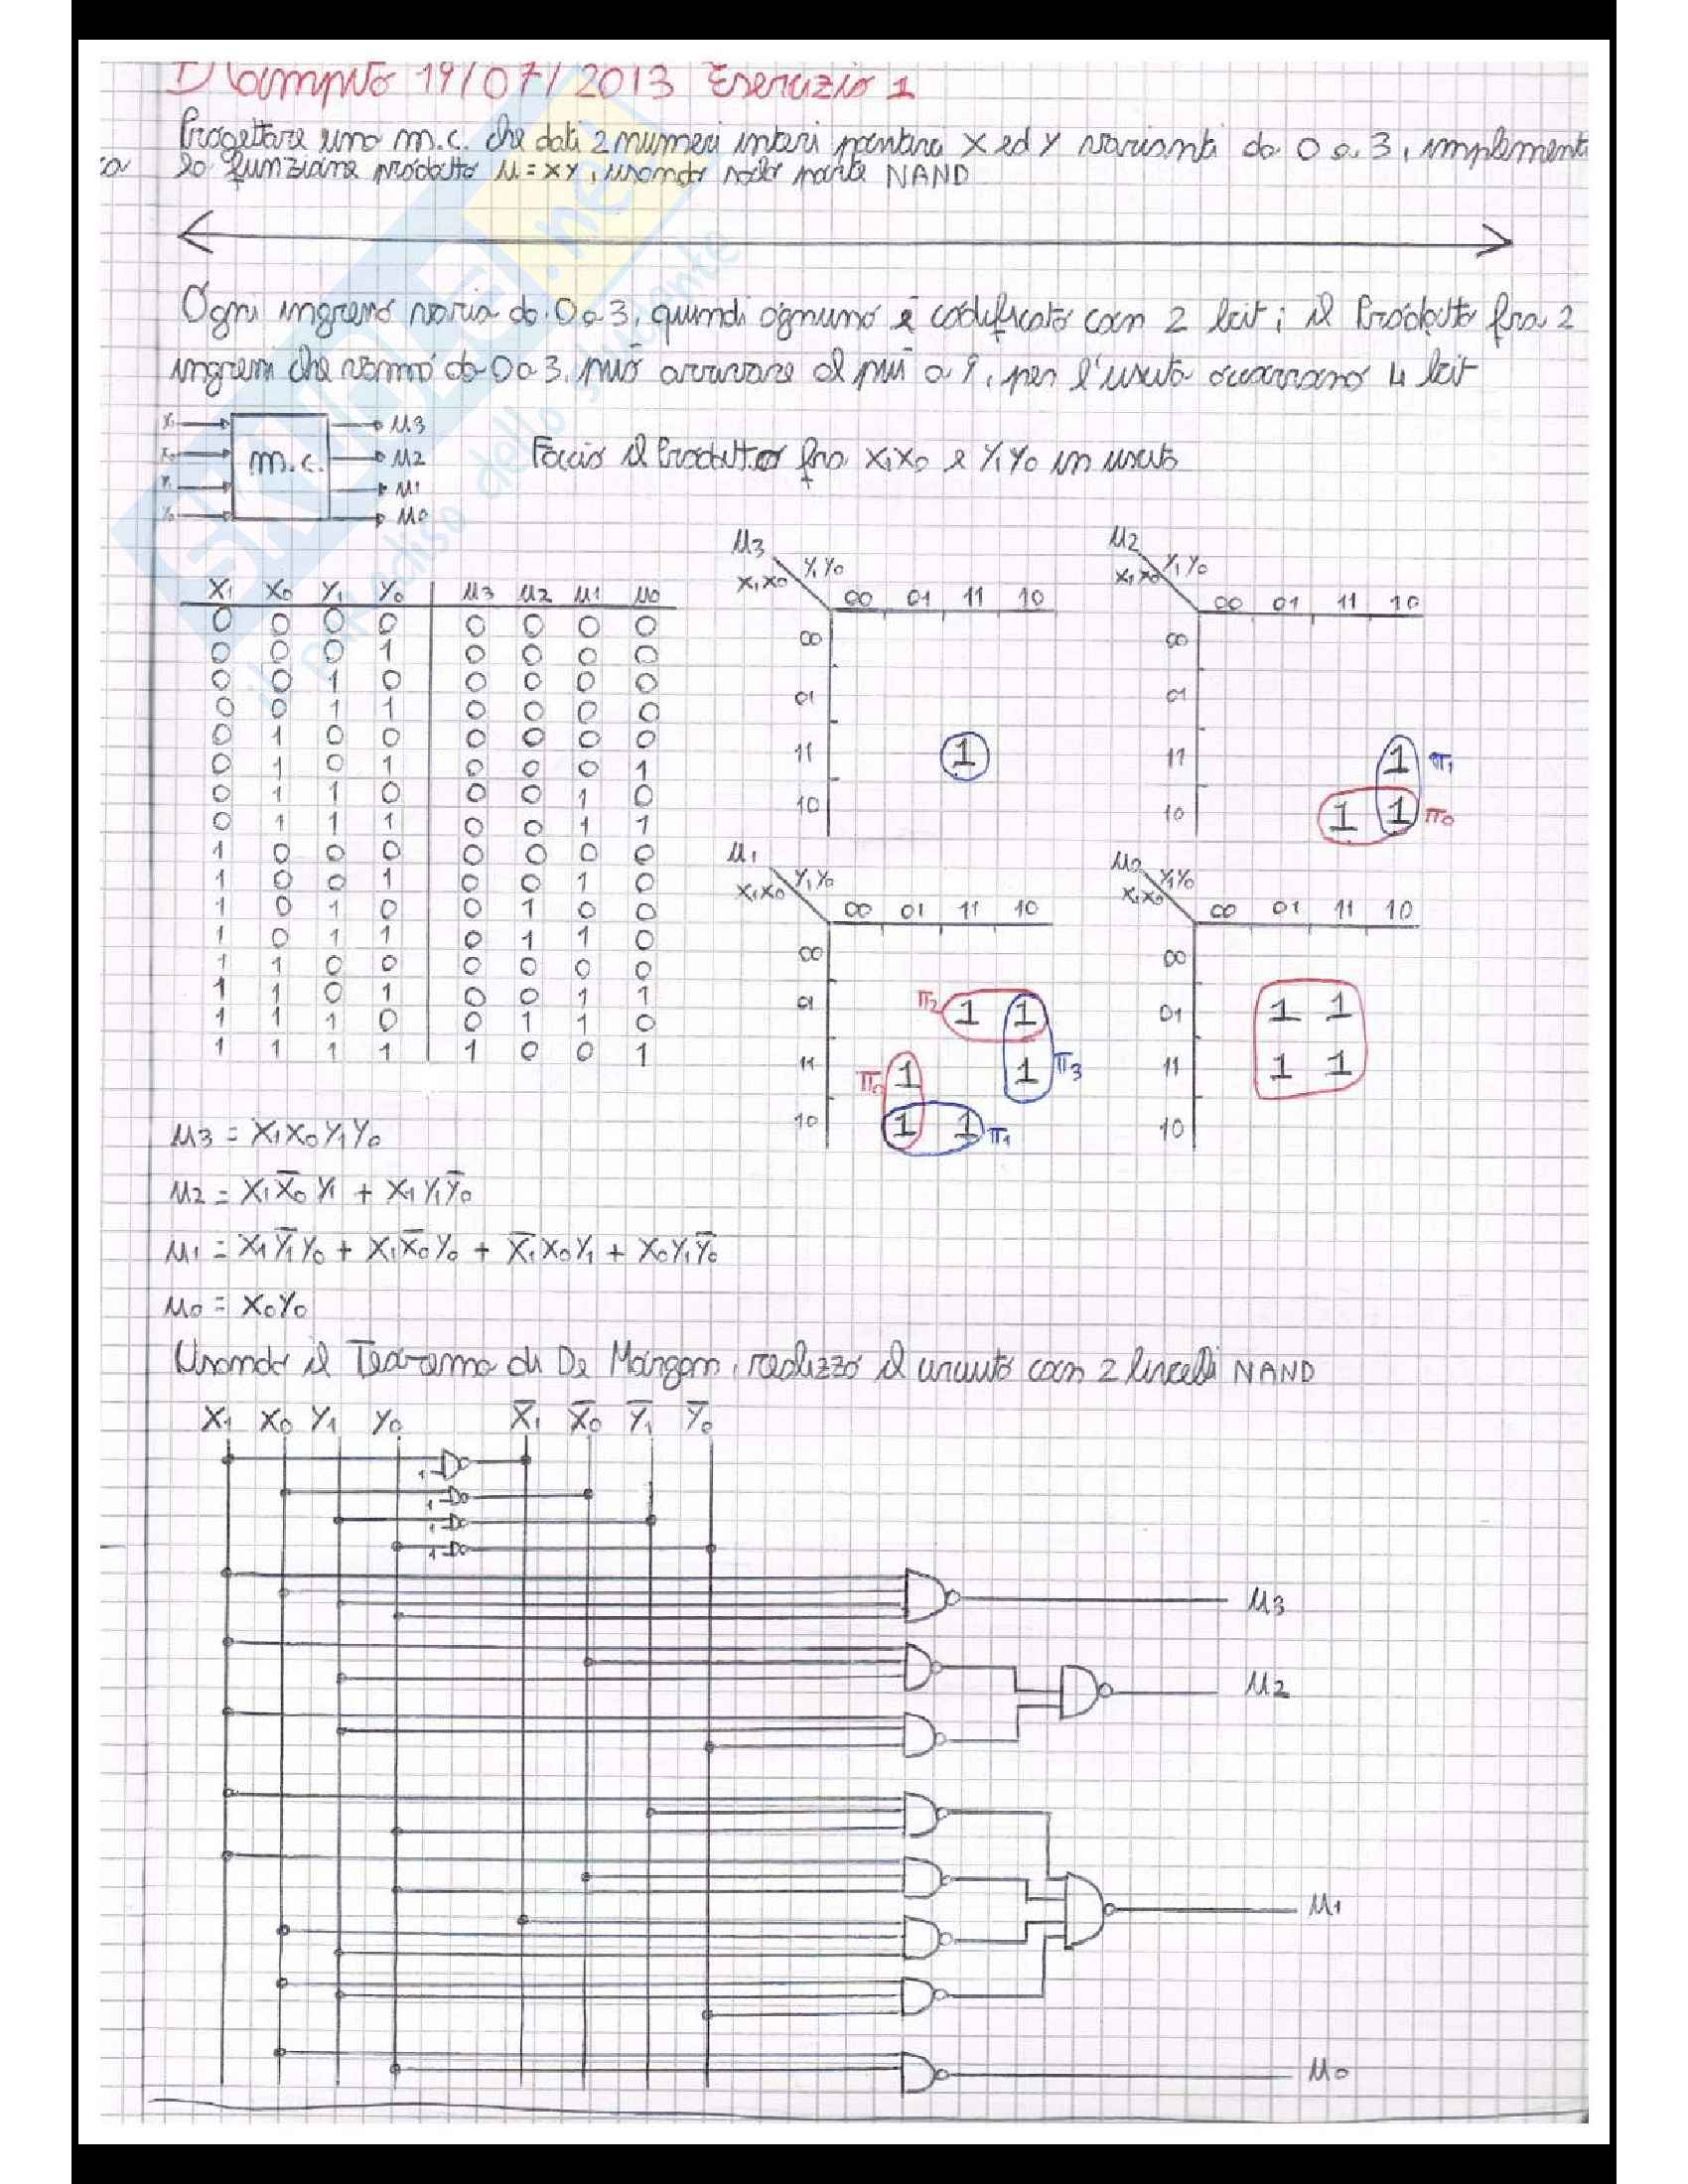 Compito 19/07/2013 Esercizio 1
Progettare una m.c. che dati 2 numeri interi X ed Y varianti da 0 a 3, implementi
la funzione prodotto u = XY, usando solo porte NAND
Ogni ingresso varia da 0 a 3, quindi ognuno è codificato con 2 bit; il Prodotto fra 2
ingressi che vanno da 0 a 3, può arrivare al più a 9, per l'uscita occorrono 4 bit
X1 u3
X0 m.c. u2
Y1 u1
Y0 u0
Faccio il Prodotto fra X1X0 e Y1Y0 in uscita
X1 X0 Y1 Y0 u3 u2 u1 u0
0 0 0 0 0 0 0 0
0 0 0 1 0 0 0 0
0 0 1 0 0 0 0 0
0 0 1 1 0 0 0 0
0 1 0 0 0 0 0 0
0 1 0 1 0 0 0 1
0 1 1 0 0 0 1 0
0 1 1 1 0 0 1 1
1 0 0 0 0 0 0 0
1 0 0 1 0 0 1 0
1 0 1 0 0 1 0 0
1 0 1 1 0 1 1 0
1 1 0 0 0 0 0 0
1 1 0 1 0 0 1 1
1 1 1 0 0 1 1 0
1 1 1 1 1 0 0 1
u3
X1X0 Y1Y0
00 01 11 10
00
01
11 1
10
u2
X1X0 Y1Y0
00 01 11 10
00
01
11 1 π1
10 1 1 π0
u1
X1X0 Y1Y0
00 01 11 10
00
01 π2 1 1
11 π0 1 1 π3
10 1 1 π1
u0
X1X0 Y1Y0
00 01 11 10
00
01 1 1
11 1 1
10
u3 = X1X0Y1Y0
u2 = X1X̅0Y1 + X1Y1Y̅0
u1 = X1Y̅1Y0 + X1X̅0Y0 + X̅1X0Y1 + X0Y1Y̅0
u0 = X0Y0
Usando il Teorema di De Morgan, realizzo il circuito con 2 livelli NAND
X1 X0 Y1 Y0 X̅1 X̅0 Y̅1 Y̅0
1
1
1
1
u3
u2
u1
u0
SKUOLA.net
il paradiso dello studente